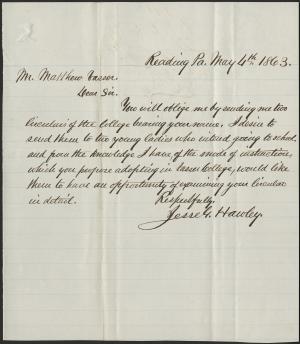 Reading Pa. May 4th 1863.
Mr. Matthew Vassar.
Dear Sir.
You will oblige me by sending me two
Circulars of the College bearing your name. I desire to
send them to two young Ladies who intend going to school,
and from the knowledge I have of the mode of instruction,
which you propose adopting in Vassar College, would like
them to have an opportunity of examining your Circular
in detail.
Respectfully,
Jesse G. Hawley.